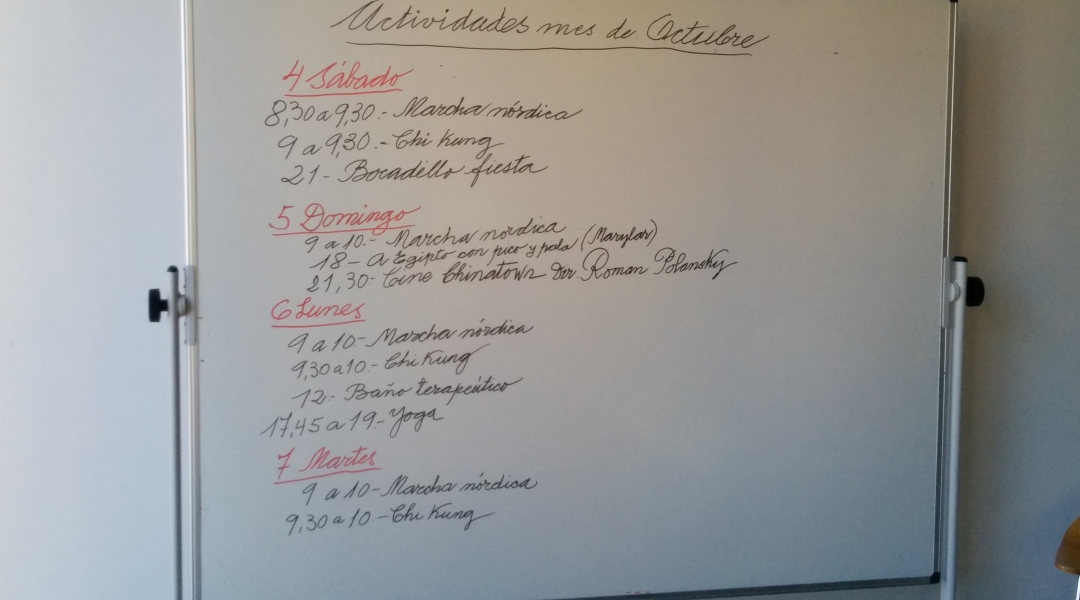 Actividades mes de Octubre
4 Sábado
8,30 a 9,30.- Marcha nórdica
9 a 9,30.- Chi Kung
21- Bocadillo fiesta
5 Domingo
9 a 10.- Marcha nordica
18- a Egipto con pico y pala (Marylar)
21,30- Cine Chinatown Dir Roman Polansky
6 Lunes
9 a 10- Marcha nórdica
9,30 a 10- Chi Kung
12- Baño terapeútico
17,45 a 19- Yoga
7 Martes
9 a 10- Marcha nórdica
9,30 a 10- Chi Kung